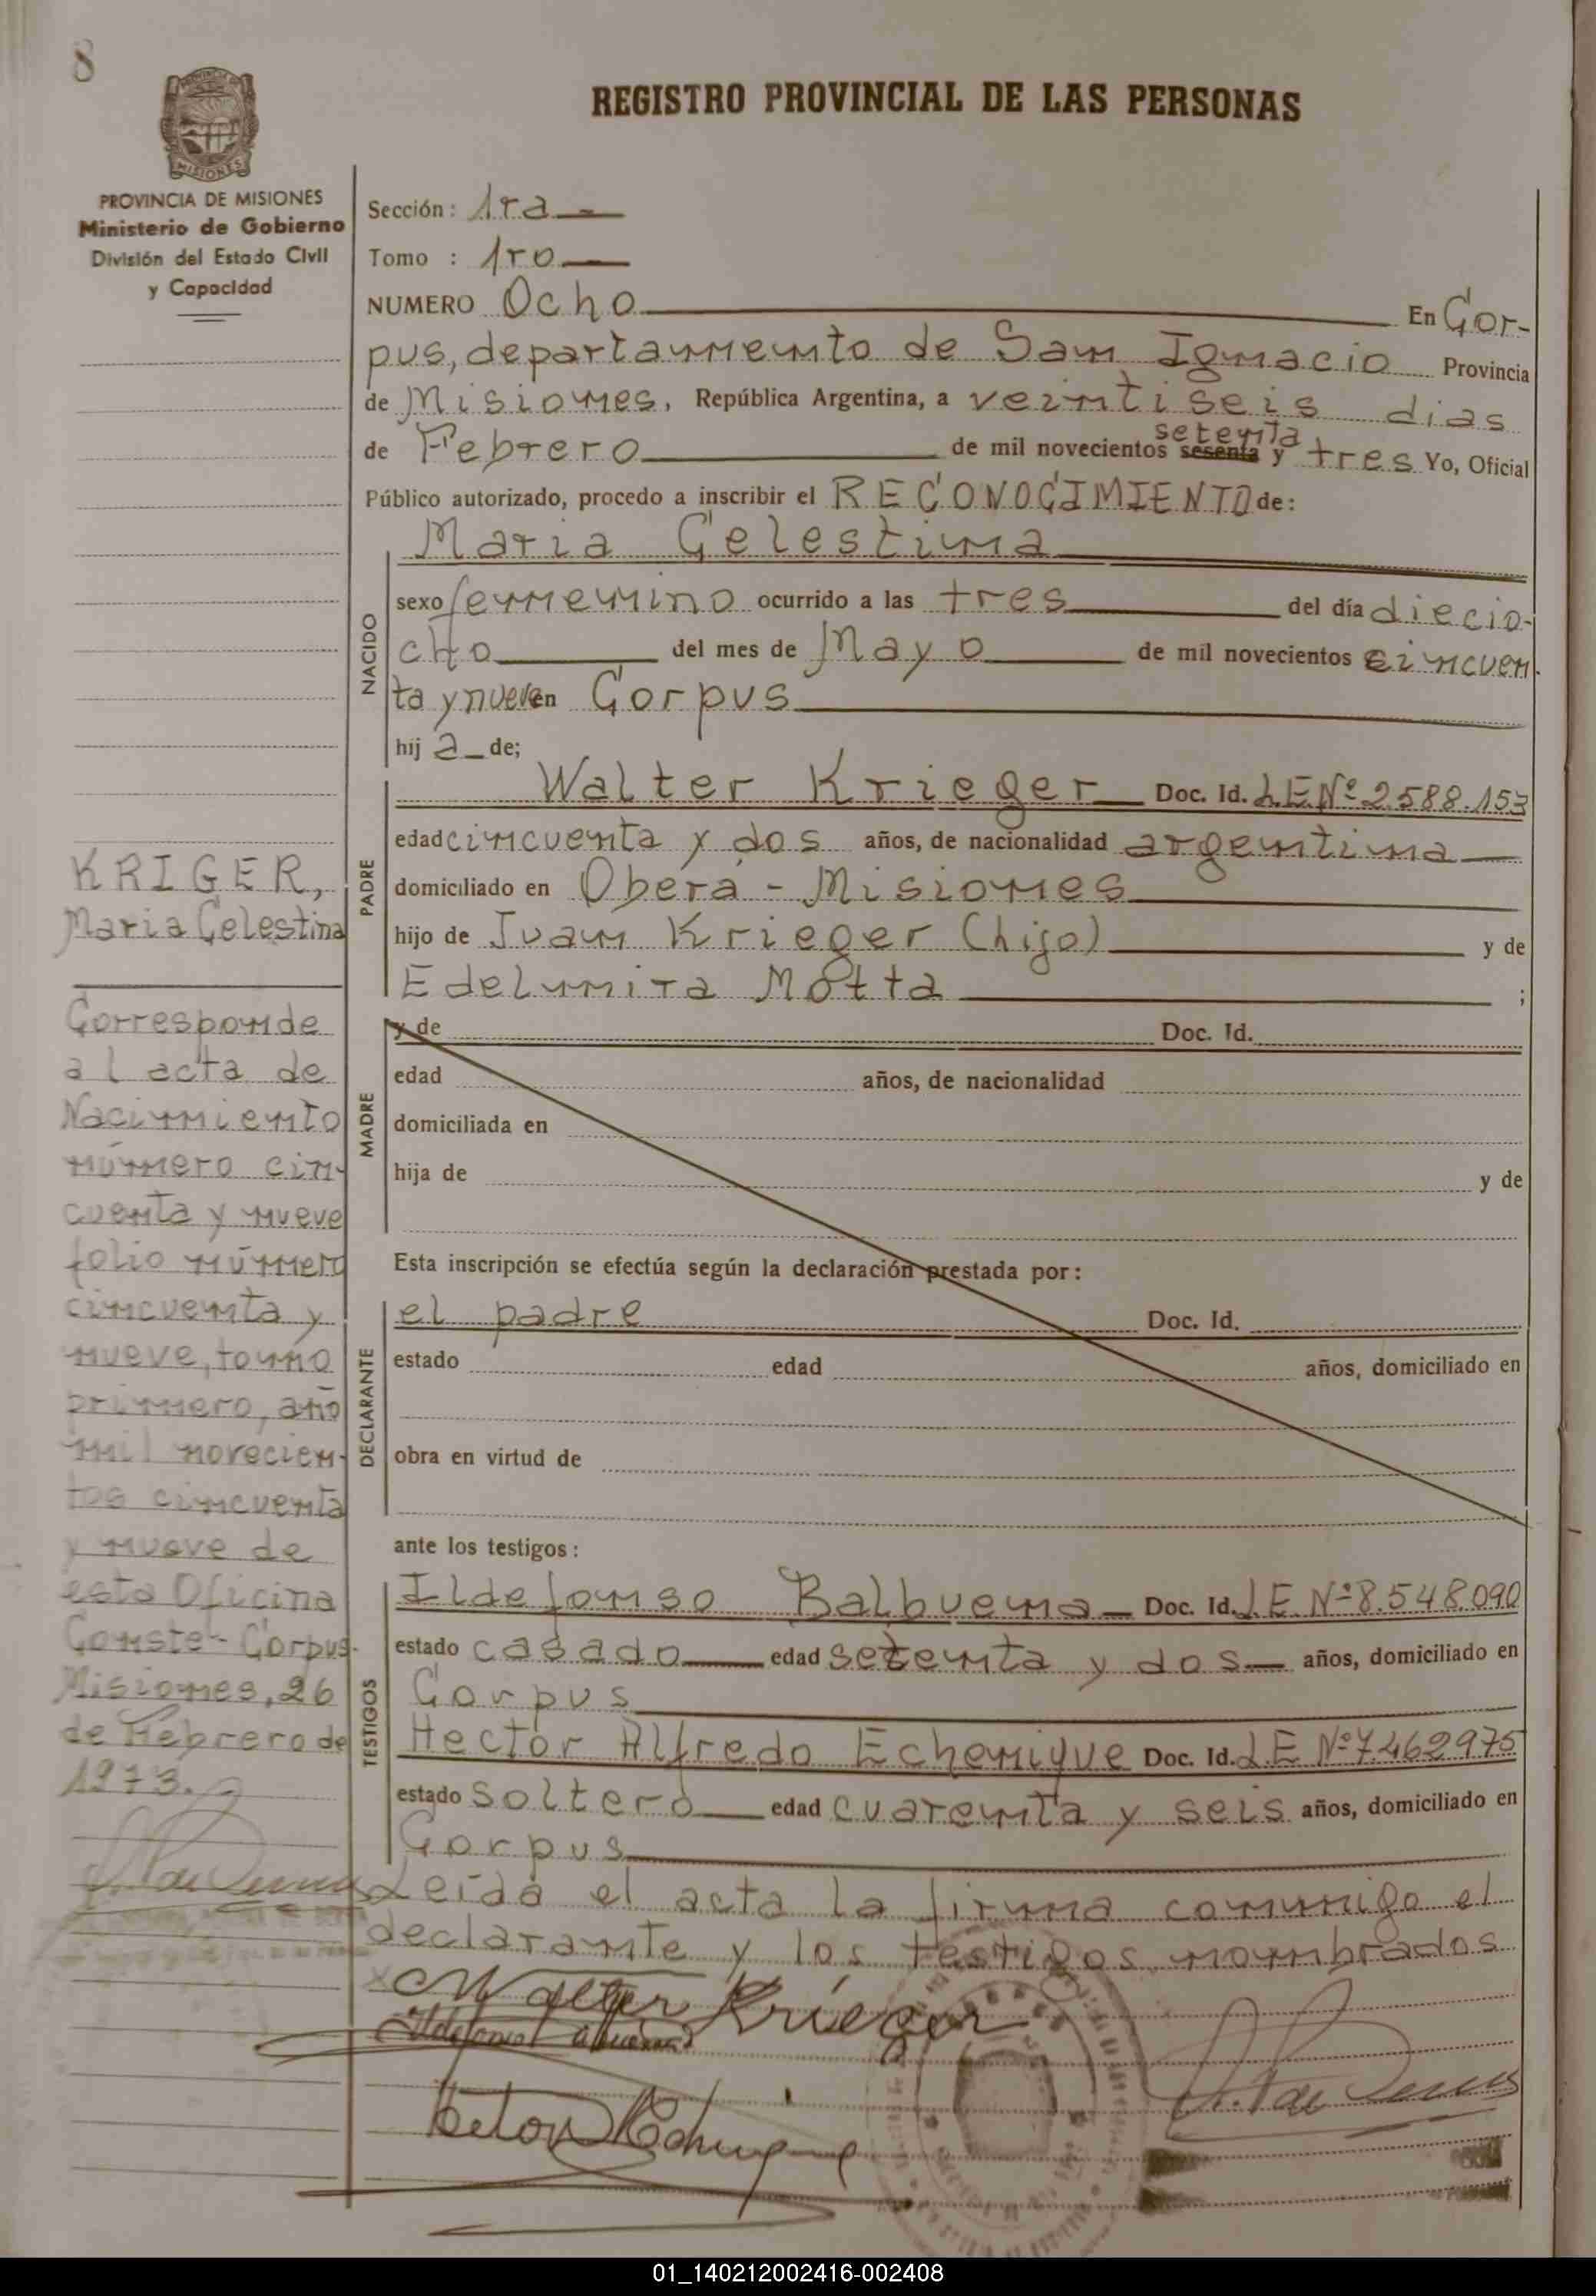 8
REGISTRO PROVINCIAL DE LAS PERSONAS
MISIONES
PROVINCIA DE MISIONES
Ministerio de Gobierno
División del Estado Civil
y Capacidad
Sección: 1ra
Tomo : 1ro
NUMERO Ocho En Cor-
pus, departamento de San Ignacio Provincia
de Misiones, República Argentina, a veintiseis dias
de Febrero de mil novecientos sesenta setenta y tres Yo, Oficial
Público autorizado, procedo a inscribir el RECONOCIMIENTO de:
NACIDO
Maria Celestina
sexo femenino ocurrido a las tres del día diecio-
cho del mes de Mayo de mil novecientos cincuen
ta y nueve en Corpus
hij a de;
PADRE
Walter Krieger Doc. Id. L.E.Nº 2.588.153
edad cincuenta y dos años, de nacionalidad argentina
domiciliado en Oberá - Misiones
hijo de Juan Krieger (hijo) y de
Edelmira Motta ;
MADRE
y de Doc. Id.
edad años, de nacionalidad
domiciliada en
hija de y de
Esta inscripción se efectúa según la declaración prestada por:
DECLARANTE
el padre Doc. Id.
estado edad años, domiciliado en
obra en virtud de
ante los testigos:
TESTIGOS
Ildefonso Balbuena Doc. Id. L.E. Nº 8.548.090
estado casado edad setenta y dos años, domiciliado en
Corpus
Hector Alfredo Echenique Doc. Id. L.E Nº 7.462975
estado soltero edad cuarenta y seis años, domiciliado en
Corpus
Leida el acta la firma conmigo el
declarante y los testigos nombrados
Walter Krieger
KRIGER,
Maria Celestina
Corresponde
al acta de
Nacimiento
número cin-
cuenta y nueve
folio número
cincuenta y
nueve, tomo
primero, año
mil novecien-
tos cincuenta
y nueve de
esta Oficina
Conste - Corpus-
Misiones, 26
de Febrero de
1973.
01_140212002416-002408